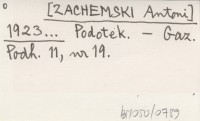 [ZACHEMSKI Antoni]
1923... Podotek. – Gaz.
Podh. 11, nr 19.